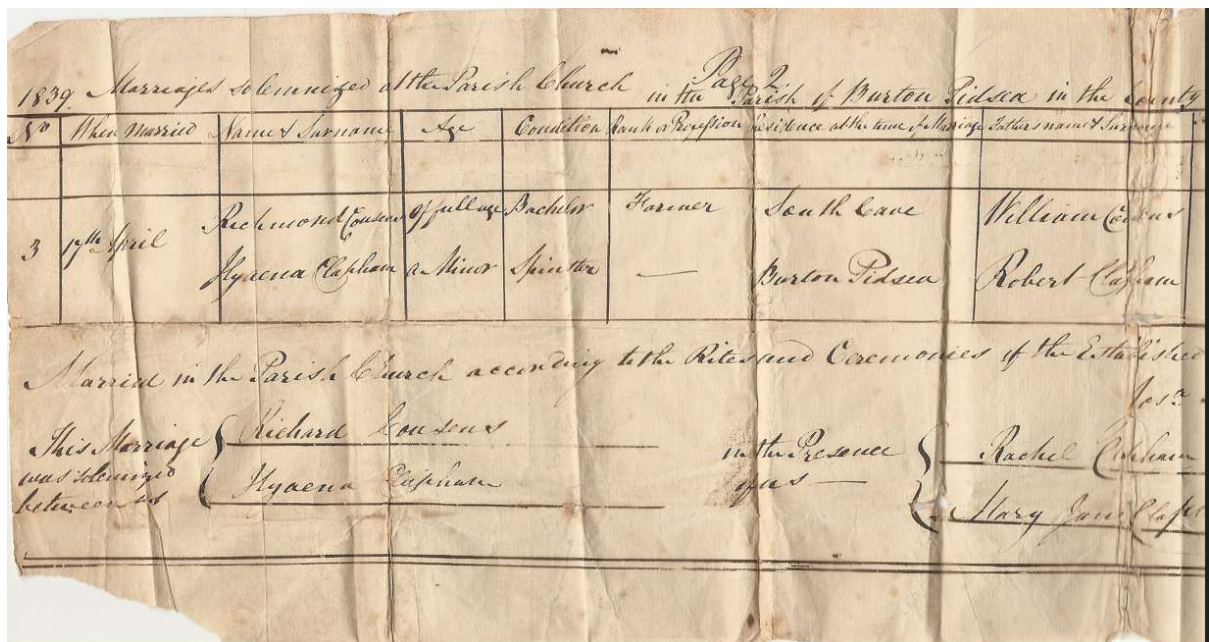 Page 2
1839. Marriages solemnized at the Parish Church in the Parish of Burton Pidsea in the County
No When Married Name & Surname Age Condition Rank or Profession Residence at the time of Marriage Father's name & Surname
Richmond Cousens of full age Bachelor Farmer South Cave William Cousens
3 17th April
Hyaena Clapham a Minor Spinster — Burton Pidsea Robert Clapham
Married in the Parish Church according to the Rites and Ceremonies of the Established
Josa
This Marriage was solemnized between us
Richard Cousens
Hyaena Clapham
in the Presence of us —
Rachel Clapham
Mary Jane Claph